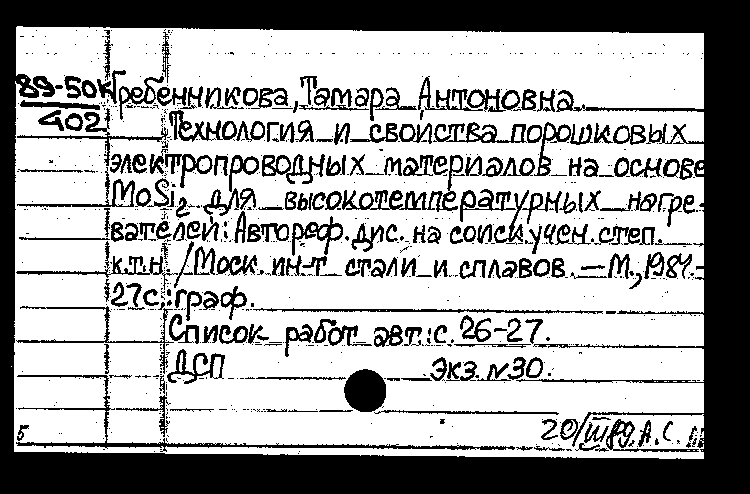 89-50к Гребенникова, Тамара Антоновна.
402
Технология и свойства порошковых
электропроводных материалов на основе
MoSi2 для высокотемпературных нагре-
вателей: Автореф. дис. на соиск. учен. степ.
к.т.н. / Моск. ин-т стали и сплавов. — М., 1989. -
27с.: граф.
Список работ авт.: с. 26-27.
ДСП Экз. N30.
20/III 89. А.С.
5